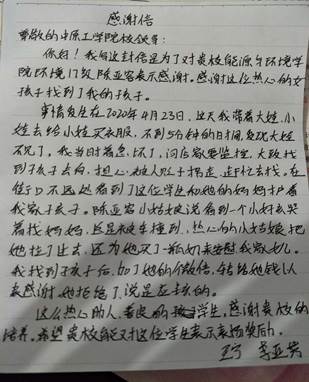 感谢信
尊敬的中原工学院校领导:
你好!我写这封信是为了对贵校能源与环境学
院环境17级陈亚容表示感谢。感谢这位热心的女
孩子找到了我的孩子。
事情发生在2020年4月23日,这天我带着大娃、小
娃去给小娃买衣服,不到5分钟的时间,发现大娃
不见了,我当时着急坏了,问店家要监控,大致找
到孩子去向,担心被人贩子拐走,赶忙去找。在
住户不远处看到了这位学生和她的妈妈护着
我家子孩子。陈亚容小姑娘说看到一个小奸哭
着找妈妈,还差被车撞到,热心的小姑娘把
她拉了过去,还为她买了一瓶奶来安慰我家女儿。
我找到子孩子后,加了她的微信,转给她钱以
表感谢,她拒绝了,说是应该的。
这么热心助人,善良的学生,感谢贵校的
培养。希望贵校能对这位学生表示表扬奖励。
王宁 李亚芳